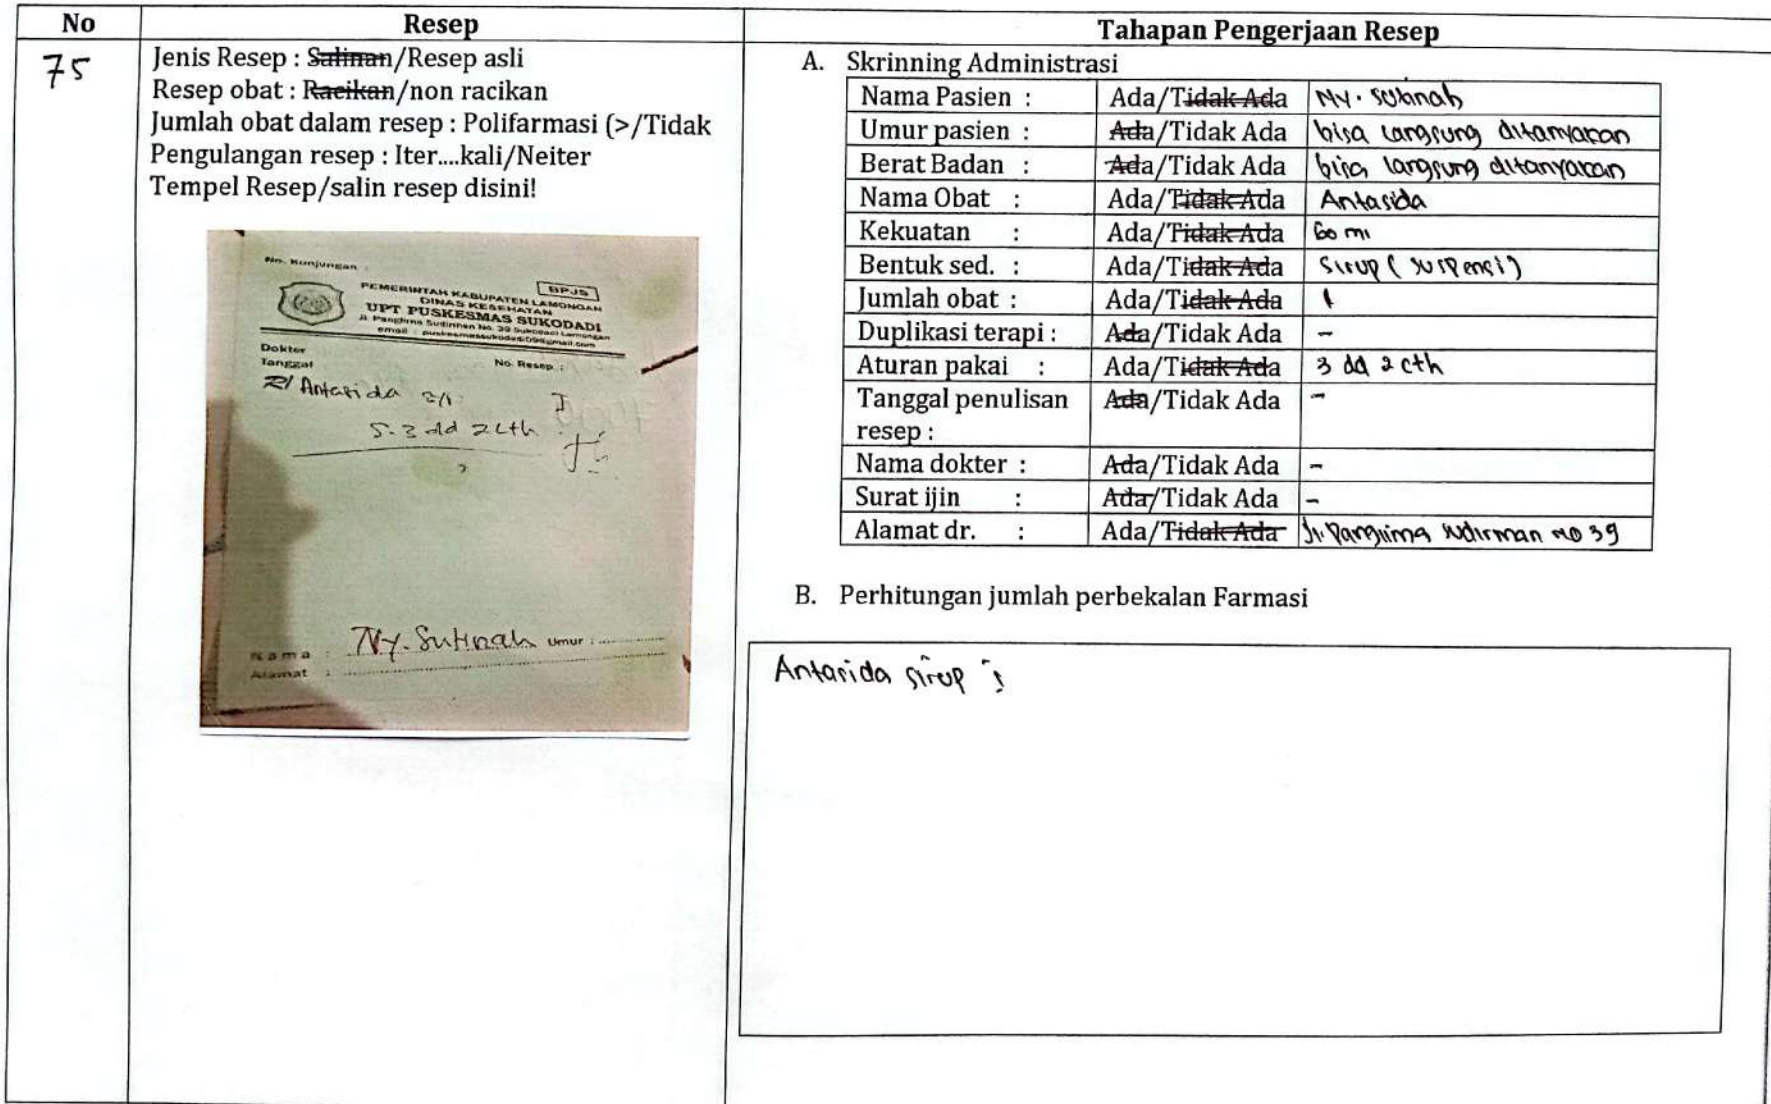 No
Resep
Tahapan Pengerjaan Resep
75
Jenis Resep : Salinan/Resep asli
Resep obat : Racikan/non racikan
Jumlah obat dalam resep : Polifarmasi (>/Tidak
Pengulangan resep : Iter....kali/Neiter
Tempel Resep/salin resep disini!
No. Kunjungan :
BPJS
PEMERINTAH KABUPATEN LAMONGAN
DINAS KESEHATAN
UPT PUSKESMAS SUKODADI
Jl. Panglima Sudirman No. 39 Sukodadi Lamongan
Dokter
Tanggal
No. Resep :
R/ Antasida
S. 3 dd 2 cth
Nama : Ny. Sutinah Umur :
Alamat :
A. Skrinning Administrasi
Nama Pasien : Ada/Tidak Ada Ny. Sutinah
Umur pasien : Ada/Tidak Ada bisa langsung ditanyakan
Berat Badan : Ada/Tidak Ada bisa langsung ditanyakan
Nama Obat : Ada/Tidak Ada Antasida
Kekuatan : Ada/Tidak Ada 60 ml
Bentuk sed. : Ada/Tidak Ada Sirup (suspensi)
Jumlah obat : Ada/Tidak Ada 1
Duplikasi terapi : Ada/Tidak Ada -
Aturan pakai : Ada/Tidak Ada 3 dd 2 cth
Tanggal penulisan Ada/Tidak Ada -
resep :
Nama dokter : Ada/Tidak Ada -
Surat ijin : Ada/Tidak Ada -
Alamat dr. : Ada/Tidak Ada Jl. Panglima Sudirman No 39
B. Perhitungan jumlah perbekalan Farmasi
Antasida sirup :